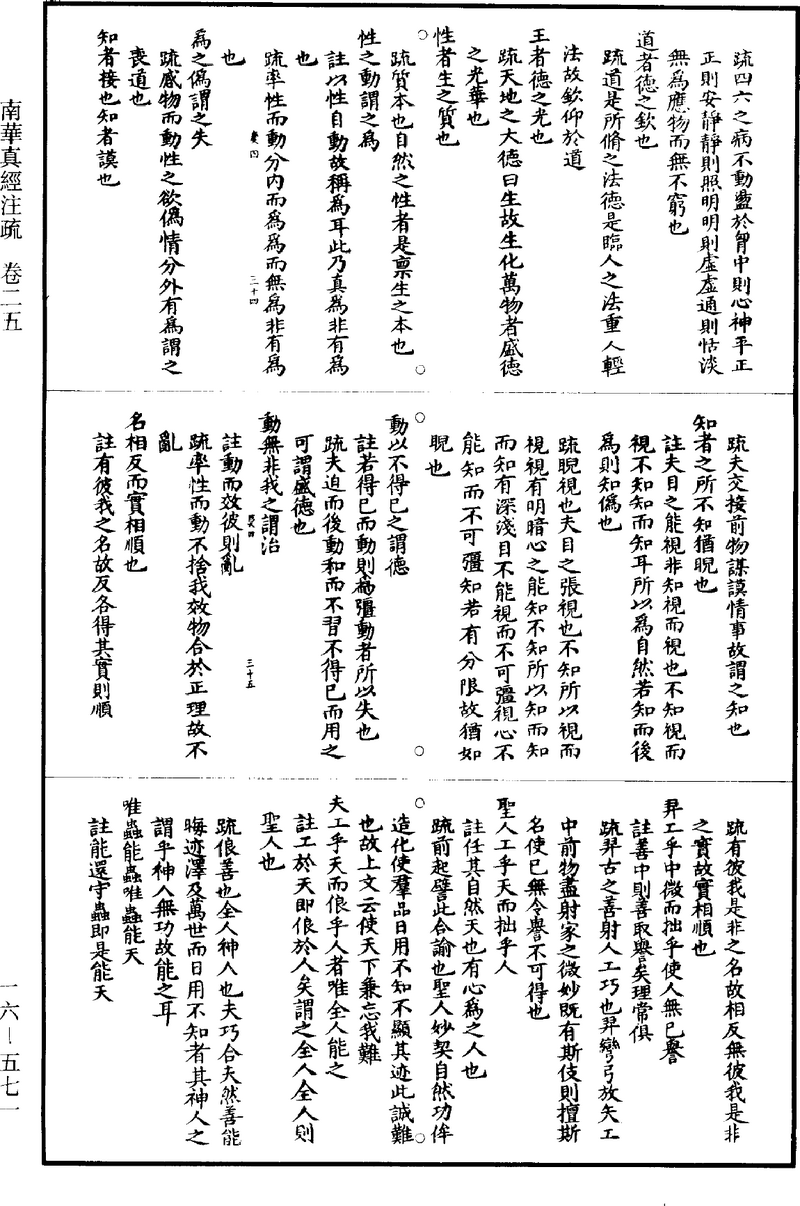 疏四六之病不動盪於胷中則心神平正
正則安靜靜則照明明則虛虛通則恬淡
無為應物而無不窮也
道者德之欽也
疏道是所脩之法德是臨人之法重人輕
法故欽仰於道
王者德之光也
疏天地之大德曰生故生化萬物者盛德
之光華也
性者生之質也
疏質本也自然之性者是稟生之本也
性之動謂之為
註以性自動故稱為耳此乃真為非有為
也
疏率性而動分內而為為而無為非有為
也
為之偽謂之失
疏感物而動性之欲偽情分外有為謂之
喪道也
知者接也知者謨也
疏夫交接前物謀謨情事故謂之知也
知者之所不知猶睨也
註夫目之能視非知視而視也不知視而
視不知知而知耳所以為自然若知而後
為則知偽也
疏睨視也夫目之張視也不知所以視而
視視有明暗心之能知不知所以知而知
而知有深淺目不能視而不可彊視心不
能知而不可彊知若有分限故猶如
睨也
動以不得已之謂德
註若得已而動則為彊動者所以失也
疏夫迫而後動和而不習不得已而用之
可謂盛德也
動無非我之謂治
註動而效彼則亂
疏率性而動不捨我效物合於正理故不
亂
名相反而實相順也
註有彼我之名故反各得其實則順
疏有彼我是非之名故相反無彼我是非
之實故實相順也
羿工乎中微而拙乎使人無已譽
註善中則善取譽矣理常俱
疏羿古之善射人工巧也羿彎弓放矢工
中前物盡射家之微妙既有斯伎則擅斯
名使己無令譽不可得也
聖人工乎天而拙乎人
註任其自然天也有心為之人也
疏前起譬此合諭也聖人妙契自然功侔
造化使羣品日用不知不顯其迹此誠難
也故上文云使天下兼忘我難
夫工乎天而俍乎人者唯全人能之
註工於天即俍於人矣謂之全人全人則
聖人也
疏俍善也全人神人也夫巧合天然善能
晦迹澤及萬世而日用不知者其神人之
謂乎神人無功故能之耳
唯蟲能蟲唯蟲能天
註能還守蟲即是能天
三十四
三十五
南華真經注疏 卷二五
一六－五七一